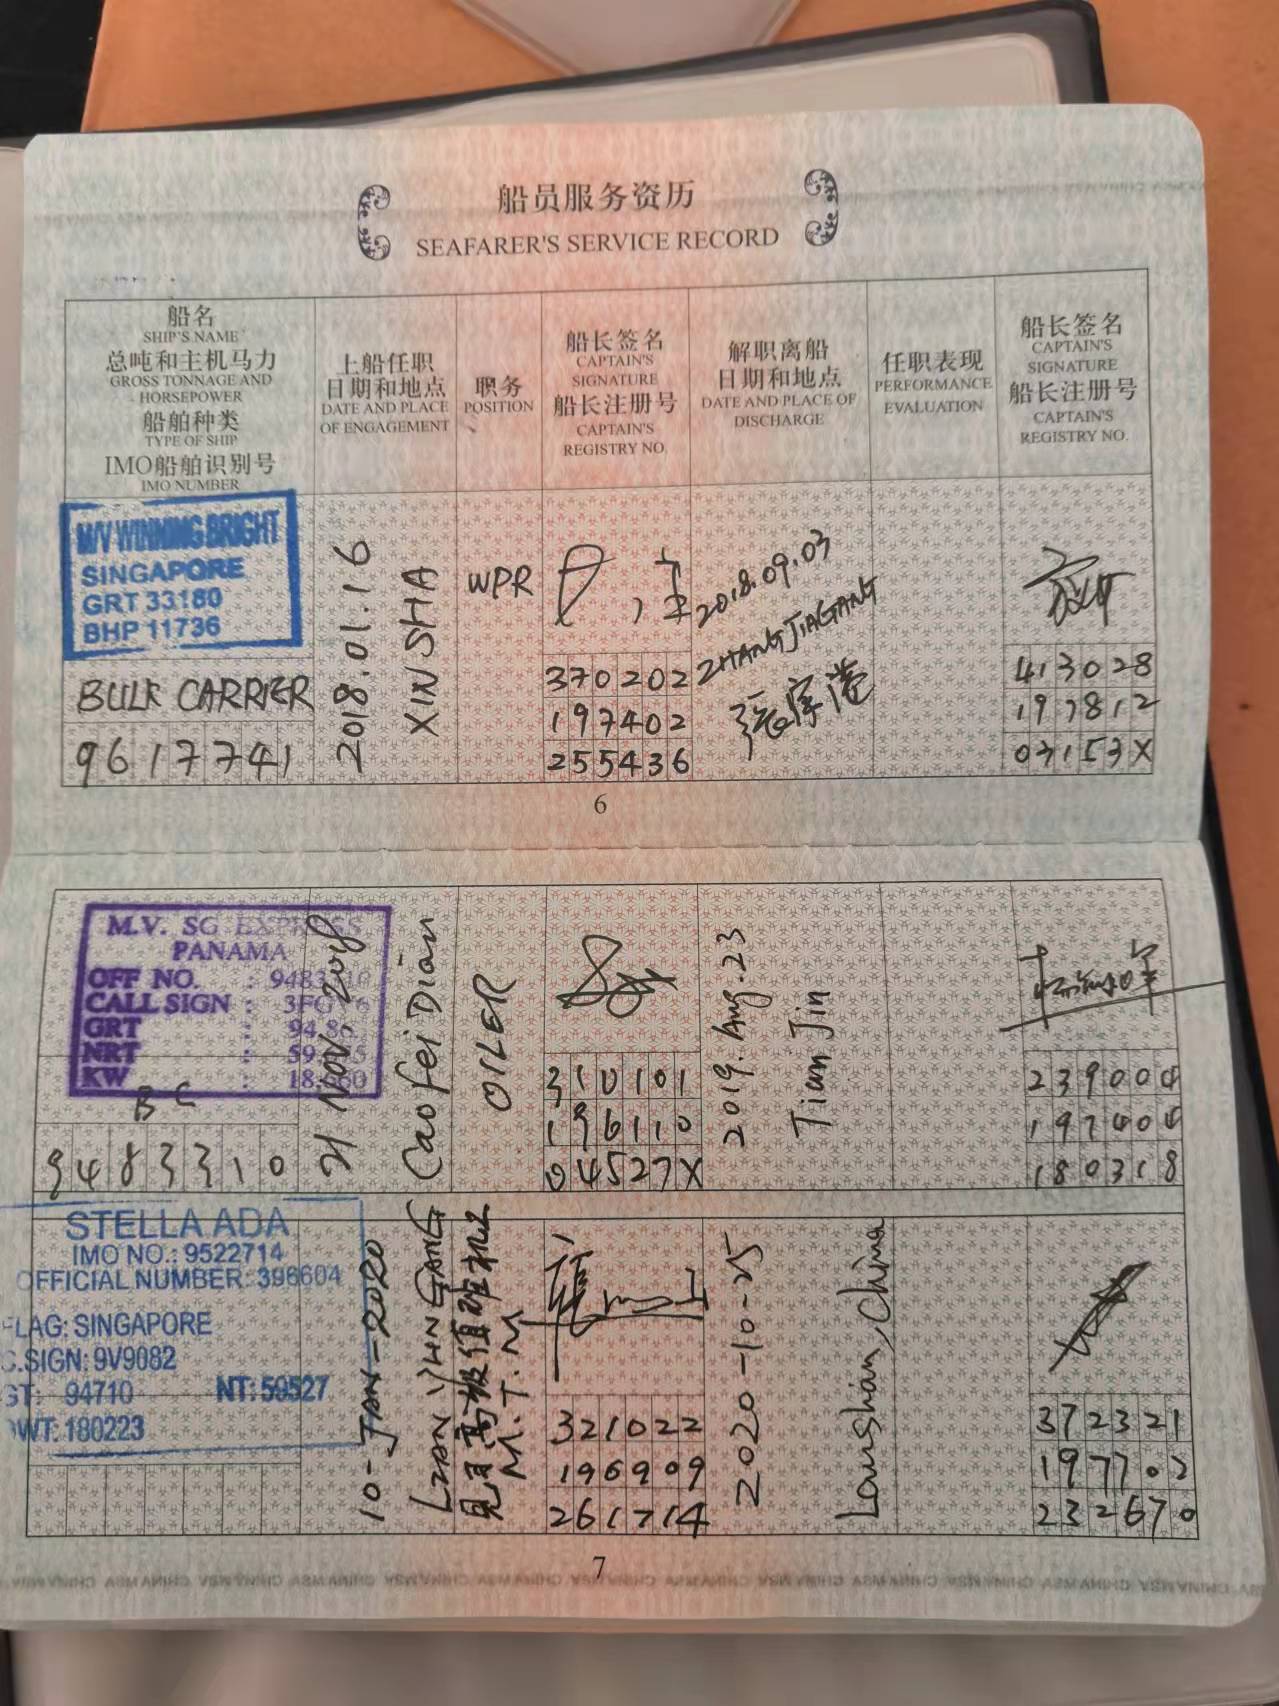 船员服务资历
SEAFARER'S SERVICE RECORD
船名
SHIP'S NAME
总吨和主机马力
GROSS TONNAGE AND
HORSEPOWER
船舶种类
TYPE OF SHIP
IMO船舶识别号
IMO NUMBER
上船任职
日期和地点
DATE AND PLACE
OF ENGAGEMENT
职务
POSITION
船长签名
CAPTAIN'S
SIGNATURE
船长注册号
CAPTAIN'S
REGISTRY NO.
解职离船
日期和地点
DATE AND PLACE OF
DISCHARGE
任职表现
PERFORMANCE
EVALUATION
船长签名
CAPTAIN'S
SIGNATURE
船长注册号
CAPTAIN'S
REGISTRY NO.
M/V WINNING BRIGHT
SINGAPORE
GRT 33180
BHP 11736
BULK CARRIER
9617741
2018.01.16
XIN SHA
WPR
370202
197402
255436
2018.09.03
ZHANGJIAGANG
張家港
413028
197812
03153X
6
M.V. SG EXPRESS
PANAMA
OFF NO. :
CALL SIGN :
GRT :
NRT :
KW :
BC
9483310
21 NOV. 2018
Caofei Dian
OILER
310101
196110
04527X
2019. Aug. 23
Tian Jin
239004
197404
180318
STELLA ADA
IMO NO.: 9522714
OFFICIAL NUMBER: 396604
FLAG: SINGAPORE
C.SIGN: 9V9082
GT: 94710 NT: 59527
DWT: 180223
10-JAN-2020
LIAN YUN GANG
見习高级值班机工
M.T.M
321022
196909
261714
2020-10-25
Longshan, China
372321
197702
232670
7